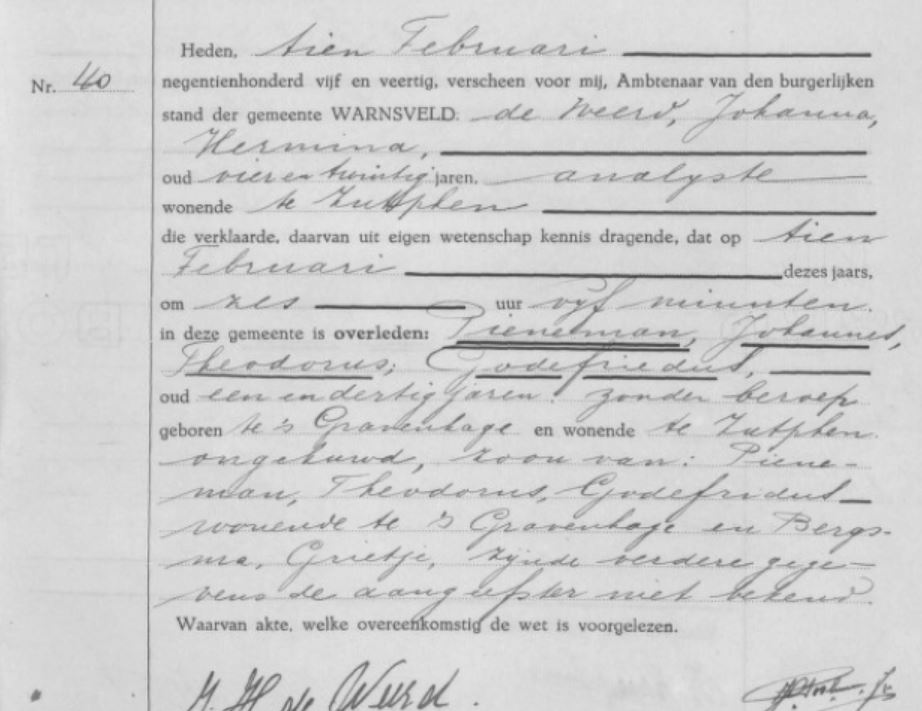 Heden, tien Februari
Nr. 40
negentienhonderd vijf en veertig, verscheen voor mij, Ambtenaar van den burgerlijken
stand der gemeente WARNSVELD. de Weerd, Johanna,
Hermina,
oud vier en twintig jaren, analyste
wonende te Zutphen
die verklaarde, daarvan uit eigen wetenschap kennis dragende, dat op tien
Februari dezes jaars,
om zes uur vyf minuten
in deze gemeente is overleden: Pieneman, Johannes,
Theodorus, Godefriedus,
oud een en dertig jaren. zonder beroep
geboren te 's Gravenhage en wonende te Zutphen.
ongehuwd, zoon van: Piene-
man, Theodorus, Godefridus
wonende te 's Gravenhage en Bergs-
ma, Grietje, zynde verdere gege-
vens de aangeefster niet bekend.
Waarvan akte, welke overeenkomstig de wet is voorgelezen.
J. H. de Weerd.